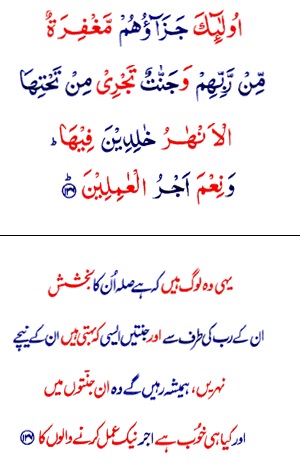 اُولٰٓئِكَ جَزَآؤُهُمْ مَّغْفِرَةٌ
مِّنْ رَّبِّهِمْ وَجَنّٰتٌ تَجْرِيْ مِنْ تَحْتِهَا
الْاَنْهٰرُ خٰلِدِيْنَ فِيْهَا ؕ
وَنِعْمَ اَجْرُ الْعٰمِلِيْنَ ؕ ﴿۱۳۶﴾
یہی وہ لوگ ہیں کہ ہے صلہ اُن کا بخشش
ان کے رب کی طرف سے اور جنتیں ایسی کہ بہتی ہیں ان کے نیچے
نہریں، ہمیشہ رہیں گے وہ ان جنّتوں میں
اور کیا ہی خُوب ہے اجر نیک عمل کرنے والوں کا ﴿۱۳۶﴾